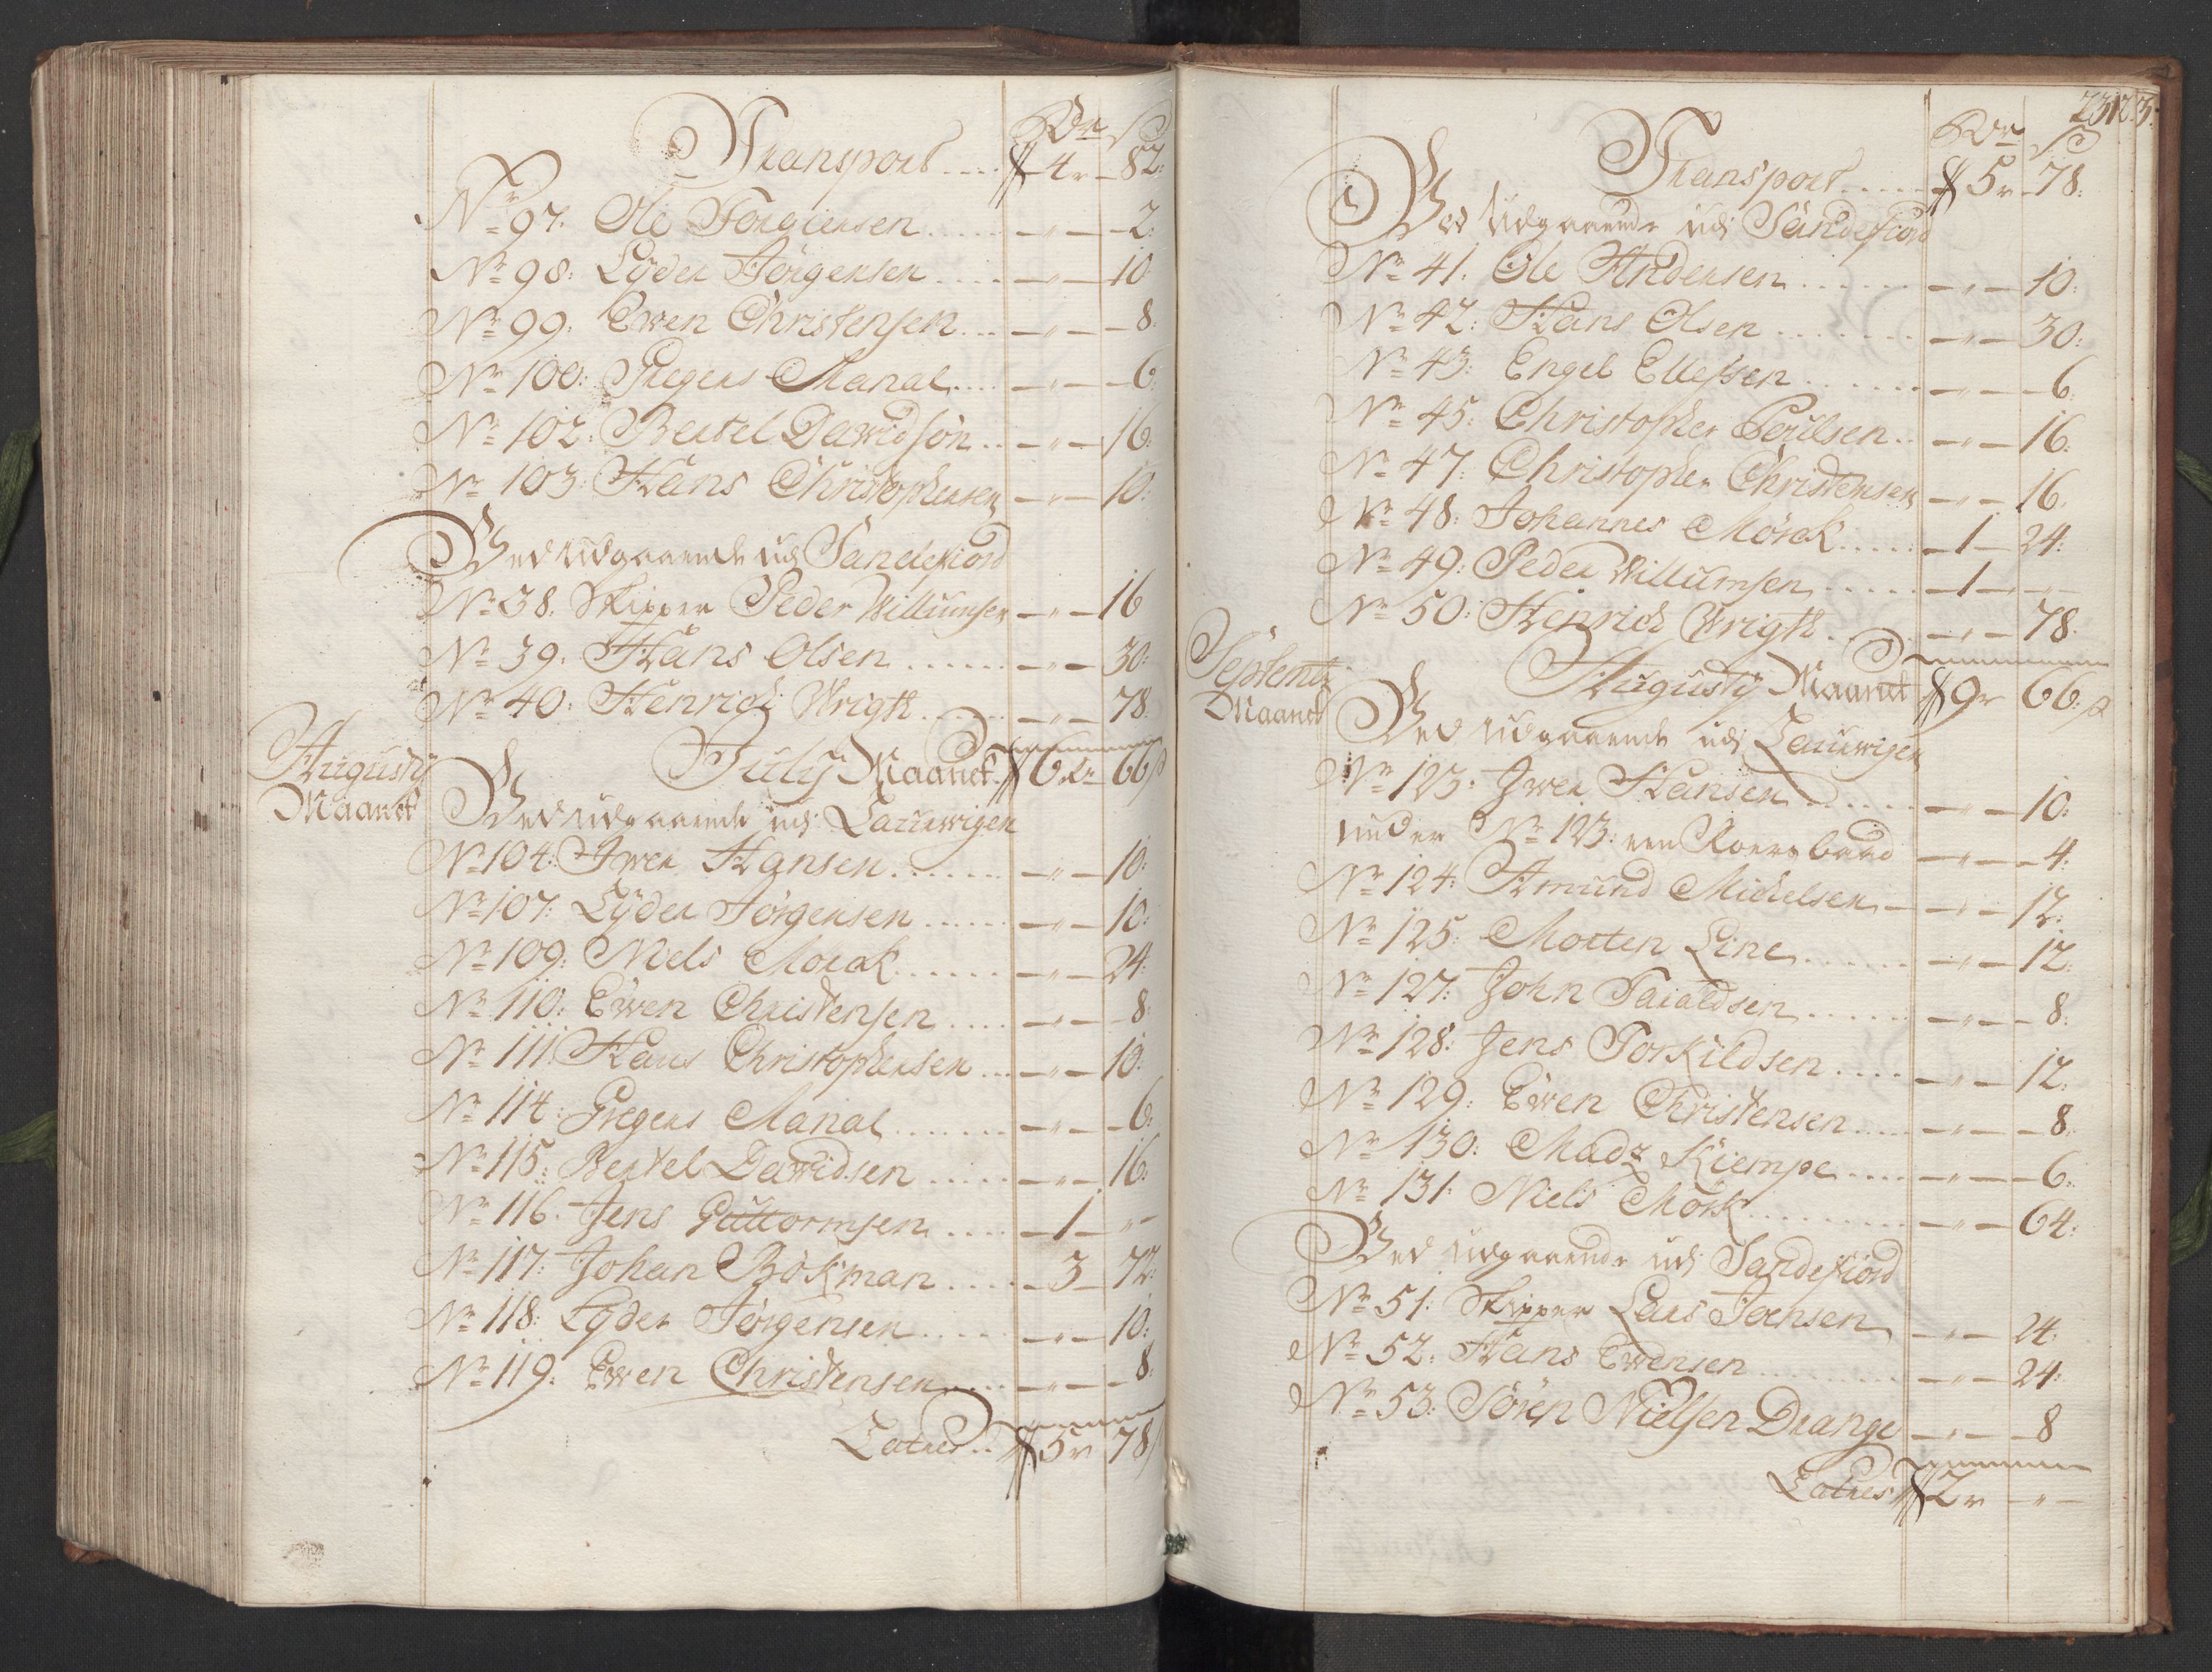 Rdr ß
Transport .... 4 r 82:
No 97. Ole Torgiersen ..... — " — 2:
No 98: Lyder Jørgensen .... — " — 10
No 99: Ewen Christensen ... — " — 8:
No 100: Gregers Manal .... — " — 6:
No 102: Bertel Dawidsøn .. — " — 16:
No 103: Hans Christophersen — " — 10:
Ved udgaaende udj Sandefiord
No 38. Skipper Peder Willumsen — " — 16
No 39. Hans Olsen ...... — " — 30:
No 40: Henrich Wrigth ..... — " — 78.
July Maanet 6 dr 66 ß
Augusty
Maanet
Ved udgaaende udj Laurwigen
No 104: Iwer Hansen ...... — " — 10:
No 107: Lyder Jørgensen ..... — " — 10:
No 109: Niels Mørck ...... — " — 24:
No 110: Ewen Christensen .... — " — 8:
No 111: Hans Christophersen ... — " — 10:
No 114: Gregers Manal ...... — " — 6:
No 115: Bertel Dawidsen ..... — " — 16:
No 116. Jens Guttormsen .... — 1 " —
No 117: Johan Bökman ..... — 3 — 72:
No 118: Lyder Jørgensen .... — " — 10:
No 119. Ewen Christensen .... — " — 8:
Latus .. 5 r 78 ß
Rdr ß
Transport ..... 5 r 78:
Ved udgaaende udj Sandefiord
No 41. Ole Andersen ...... — " — 10:
No 42: Hans Olsen ....... — " — 30:
No 43: Engel Ellefsen ...... — " — 6.
No 45: Christopher Poulsen .. — " — 16:
No 47: Christopher Christensen — " — 16.
No 48: Johannes Mørck ..... — 1 — 24:
No 49: Peder Willumsen ..... — 1 — " —
No 50: Henrich Wrigth . — " — 78.
Augusty Maanet 9 r 66: ß
Septemb:
Maanet
Ved udgaaende udj Laurwigen
No 123: Iwer Hansen ...... — " — 10:
under No 123: een Roers baad — " — 4:
No 124: Amund Michelsen — — " — 12:
No 125: Morten Line ...... — " — 12:
No 127: John Taraldsen ..... — " — 8:
No 128: Jens Torkildsen .... — " — 12:
No 129: Ewen Christensen .... — " — 8:
No 130: Madz Kiempe .... — " — 6:
No 131: Niels Mørk ......... — " — 64:
Ved udgaaende udj Sandefiord
No 51: Skipper Lars Jensen — " — 24:
No 52: Hans Ewensen ........ — " — 24:
No 53: Sören Nielsen Drange — " — 8
Latus 2 r — " —